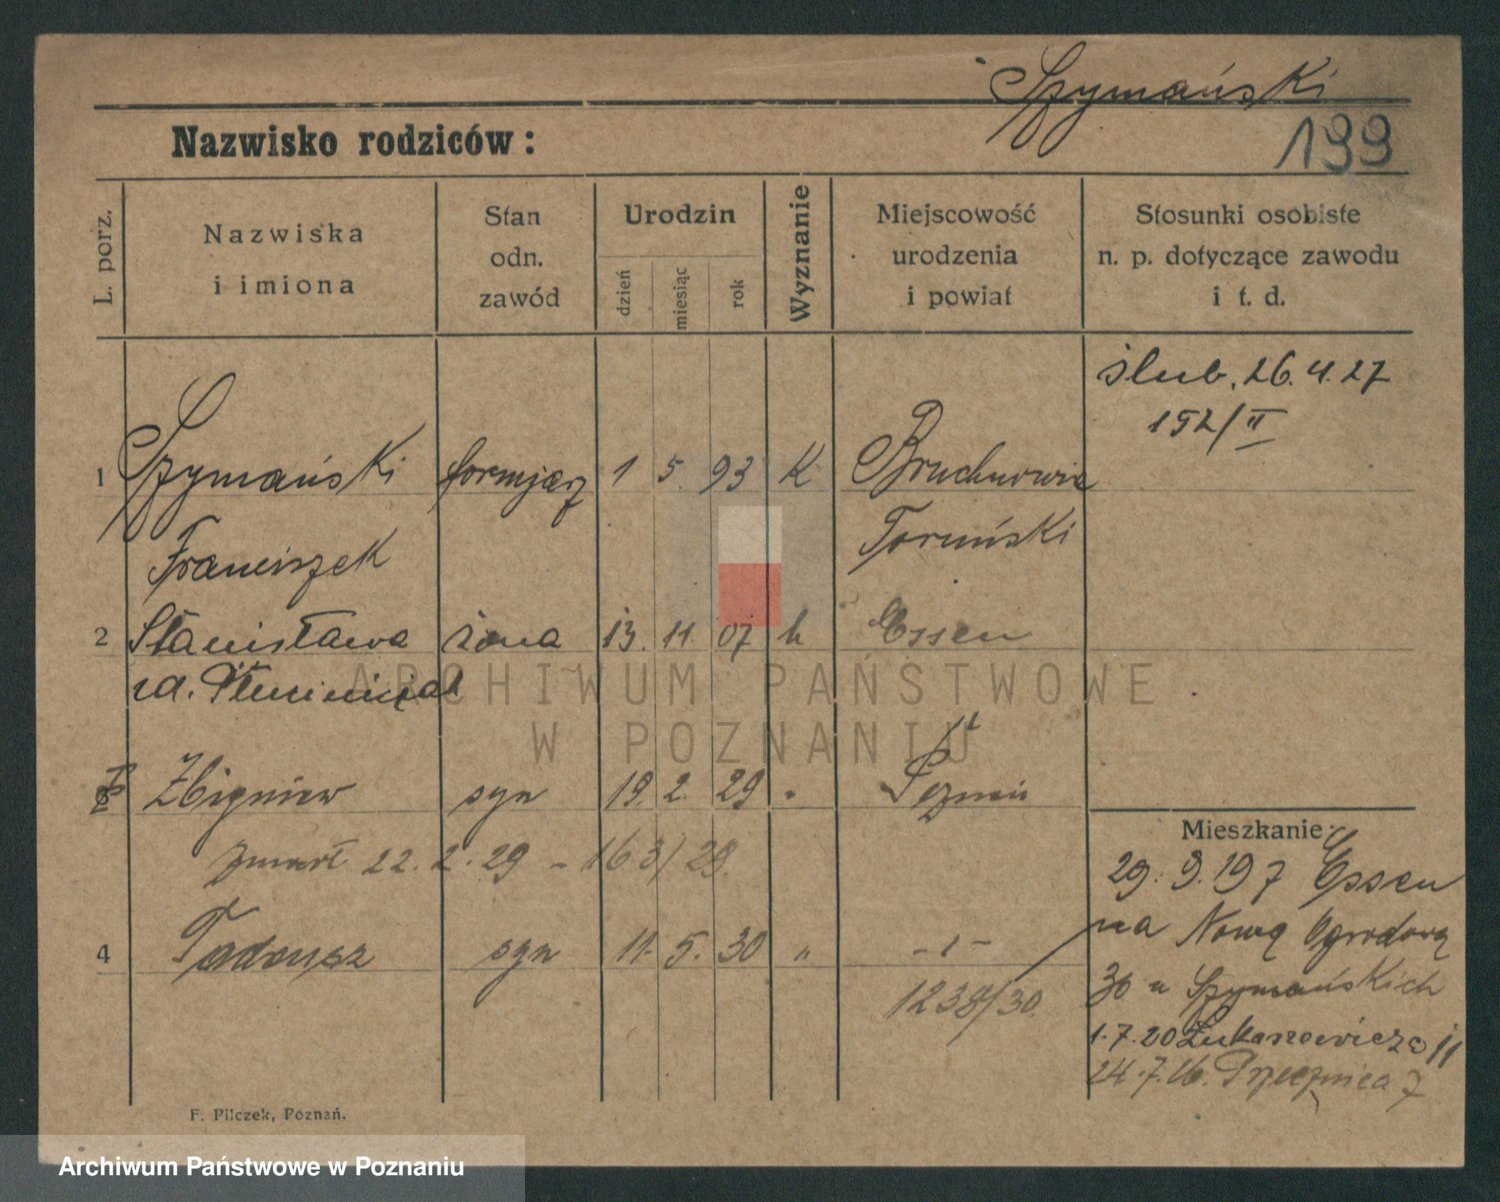 Szymański
199
Nazwisko rodziców:
L. porz.
Nazwiska
i imiona
Stan
odn.
zawód
Urodzin
dzień
miesiąc
rok
Wyznanie
Miejscowość
urodzenia
i powiat
Stosunki osobiste
n. p. dotyczące zawodu
i t. d.
ślub, 26.4.27
152/II
1 Szymański formjarz 1 5. 93 K
Franciszek Toruński
2 Stanisława żona 13. 11. 07 k Essen
zd.
Zbigniew syn 19. 2. 29 "
zmarł 22. 2. 29 - 163/29.
4 Tadeusz syn 11. 5. 30 " -1-
1238/30.
Mieszkanie:
29. 9. 19 z Essen
na Nową Ogrodową
30 u Szymańskich
1.7.20 Łukaszewicza 11
24.7.26. Przecznica 7
F. Pilczek, Poznań.
ARCHIWUM PAŃSTWOWE
W POZNANIU
Archiwum Państwowe w Poznaniu